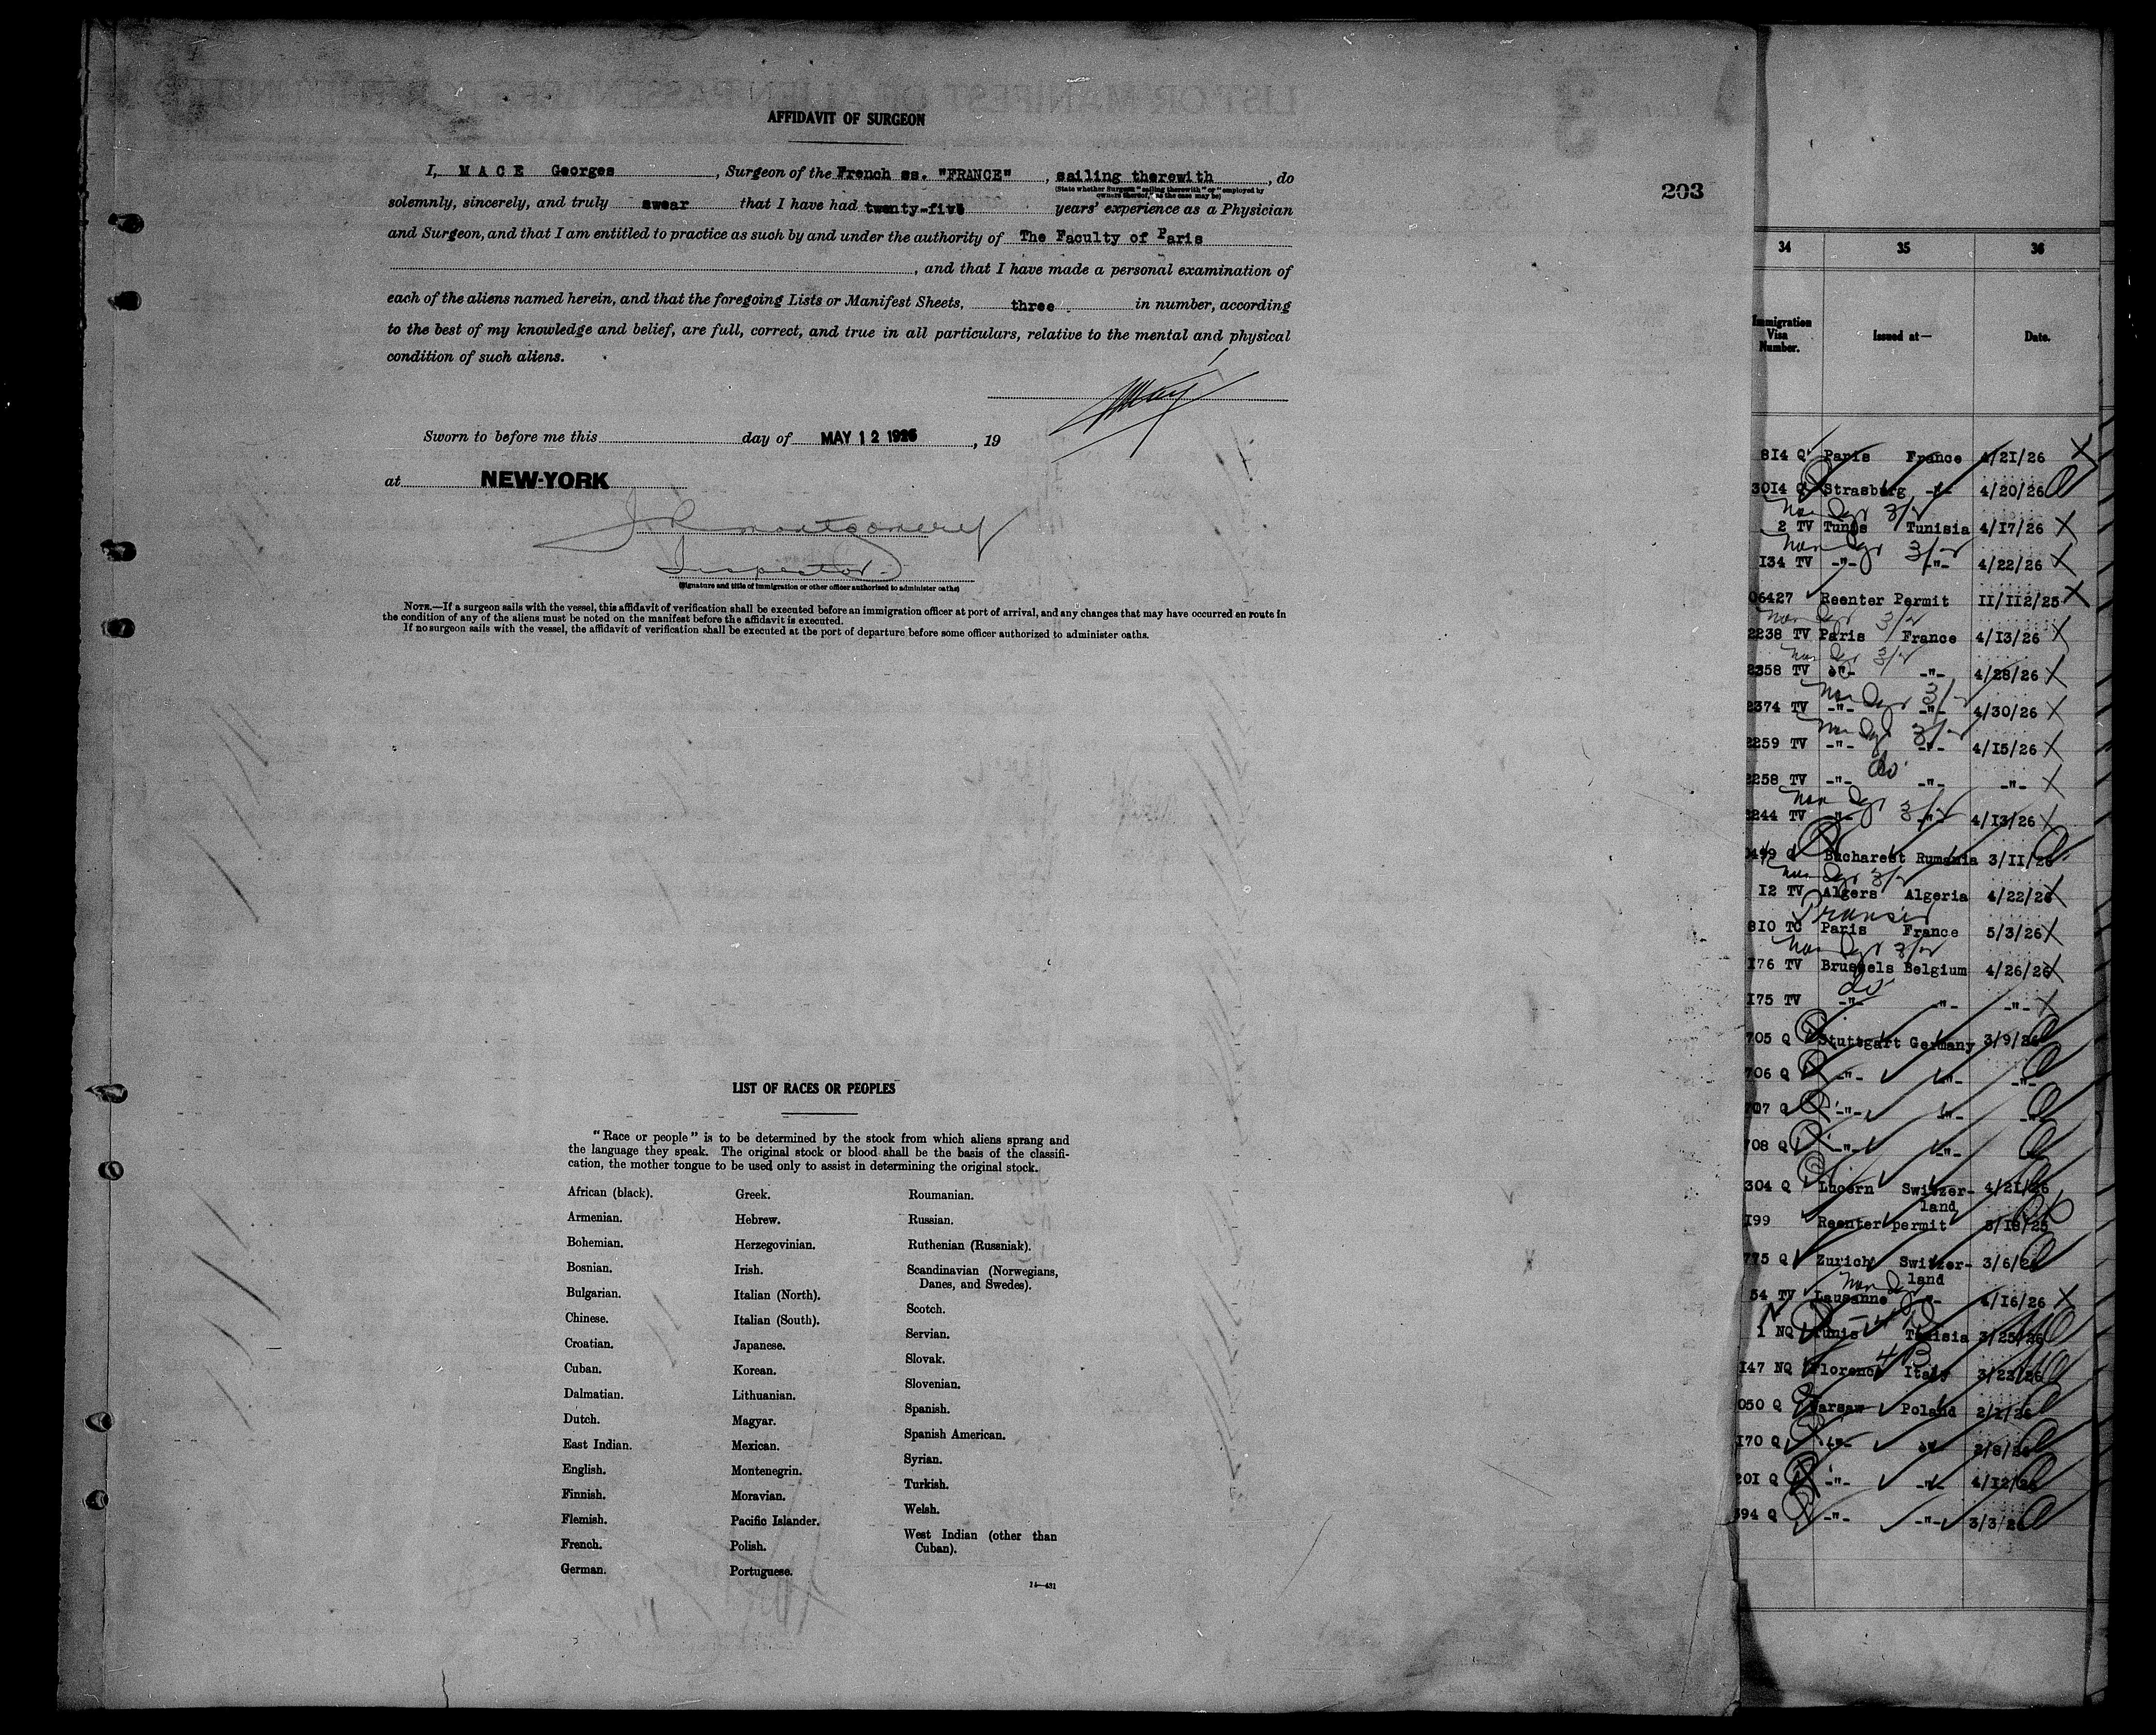 AFFIDAVIT OF SURGEON
I, M A C E Georges , Surgeon of the French ss. "FRANCE" , sailing therewith , do
(State whether Surgeon "sailing therewith" or "employed by
owners thereof," as the case may be)
solemnly, sincerely, and truly swear that I have had twenty-five years' experience as a Physician
and Surgeon, and that I am entitled to practice as such by and under the authority of The Faculty of Paris
, and that I have made a personal examination of
each of the aliens named herein, and that the foregoing Lists or Manifest Sheets, three in number, according
to the best of my knowledge and belief, are full, correct, and true in all particulars, relative to the mental and physical
condition of such aliens.
Sworn to before me this day of MAY 12 1926 , 19
at NEW-YORK
J R Montgomery
Inspector.
(Signature and title of immigration or other officer authorized to administer oaths)
NOTE.—If a surgeon sails with the vessel, this affidavit of verification shall be executed before an immigration officer at port of arrival, and any changes that may have occurred en route in
the condition of any of the aliens must be noted on the manifest before the affidavit is executed.
If no surgeon sails with the vessel, the affidavit of verification shall be executed at the port of departure before some officer authorized to administer oaths.
LIST OF RACES OR PEOPLES
"Race or people" is to be determined by the stock from which aliens sprang and
the language they speak. The original stock or blood shall be the basis of the classifi-
cation, the mother tongue to be used only to assist in determining the original stock.
African (black).
Armenian.
Bohemian.
Bosnian.
Bulgarian.
Chinese.
Croatian.
Cuban.
Dalmatian.
Dutch.
East Indian.
English.
Finnish.
Flemish.
French.
German.
Greek.
Hebrew.
Herzegovinian.
Irish.
Italian (North).
Italian (South).
Japanese.
Korean.
Lithuanian.
Magyar.
Mexican.
Montenegrin.
Moravian.
Pacific Islander.
Polish.
Portuguese.
Roumanian.
Russian.
Ruthenian (Russniak).
Scandinavian (Norwegians,
Danes, and Swedes).
Scotch.
Servian.
Slovak.
Slovenian.
Spanish.
Spanish American.
Syrian.
Turkish.
Welsh.
West Indian (other than
Cuban).
14—431
203
34 35 36
Immigration Visa Number. Issued at— Date.
814 Q Paris France 4/21/26
3014 Q Strasburg -"- 4/20/26
2 TV Tunis Tunisia 4/17/26
134 TV -"- -"- 4/22/26
06427 Reenter Permit II/II2/25
2238 TV Paris France 4/13/26
2358 TV -"- -"- 4/28/26
2374 TV -"- -"- 4/30/26
2259 TV -"- -"- 4/15/26
do
2258 TV -"- -"- -"-
2244 TV -"- -"- 4/13/26
499 Q Bucharest Rumania 3/11/26
12 TV Algers Algeria 4/22/26
Transit
810 TC Paris France 5/3/26
176 TV Brussels Belgium 4/26/26
do
175 TV -"- -"- -"-
705 Q Stuttgart Germany 3/9/26
706 Q -"- -"- -"-
707 Q -"- -"- -"-
708 Q -"- -"-
304 Q Lucern Switzer- 4/21/26
land
199 Reenter permit 5/18/25
775 Q Zurich Switzer- 3/6/26
land
54 TV Lausanne -"- 4/16/26
1 NQ Tunis Tunisia 3/25/26
147 NQ Florence Italy 3/22/26
050 Q Warsaw Poland 2/1/26
170 Q -"- -"- 2/8/26
201 Q -"- -"- 4/12/26
594 Q -"- -"- 3/3/26